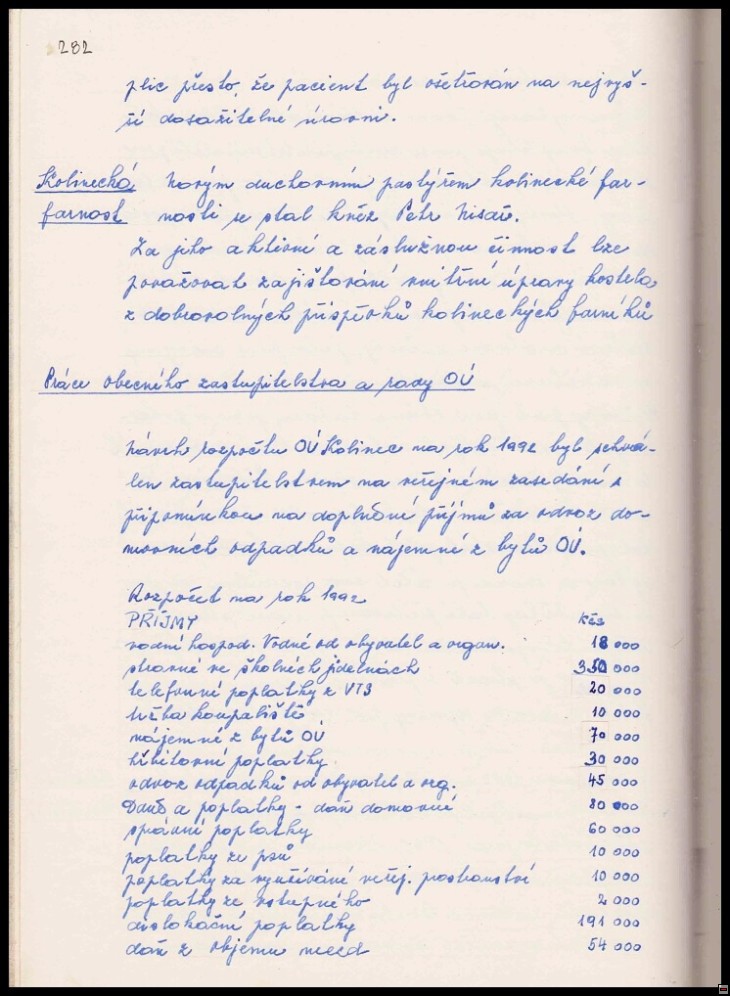 282
plic přesto, že pacient byl ošetřován na nejvyš-
ší dosažitelné úrovni.
Kolinecká farnost
Novým duchovním pastýřem kolinecké far-
nosti se stal kněz Petr
Za jeho aktivní a záslužnou činnost lze
považovat zajišťování vnitřní úpravy kostela
z dobrovolných příspěvků kolineckých farníků
Práce obecného zastupitelstva a rady OÚ
Návrh rozpočtu OÚ Kolinec na rok 1992 byl schvá-
len zastupitelstvem na veřejném zasedání s
připomínkou na doplnění příjmů za odvoz do-
movních odpadků a nájemné z bytů OÚ.
Rozpočet na rok 1992
PŘÍJMY Kčs
vodní hospod. Vodné od obyvatel a organ. 18 000
stravné ve školních jídelnách 350 000
telefonní poplatky z VTS 20 000
tržba koupaliště 10 000
nájemné z bytů OÚ 70 000
hřbitovní poplatky 30 000
odvoz odpadků od obyvatel a org. 45 000
Daně a poplatky - daň domovní 80 000
správní poplatky 60 000
poplatky ze psů 10 000
poplatky za využívání veřej. prostranství 10 000
poplatky ze vstupného 2 000
dislokační poplatky 191 000
daň z objemu mezd 54 000